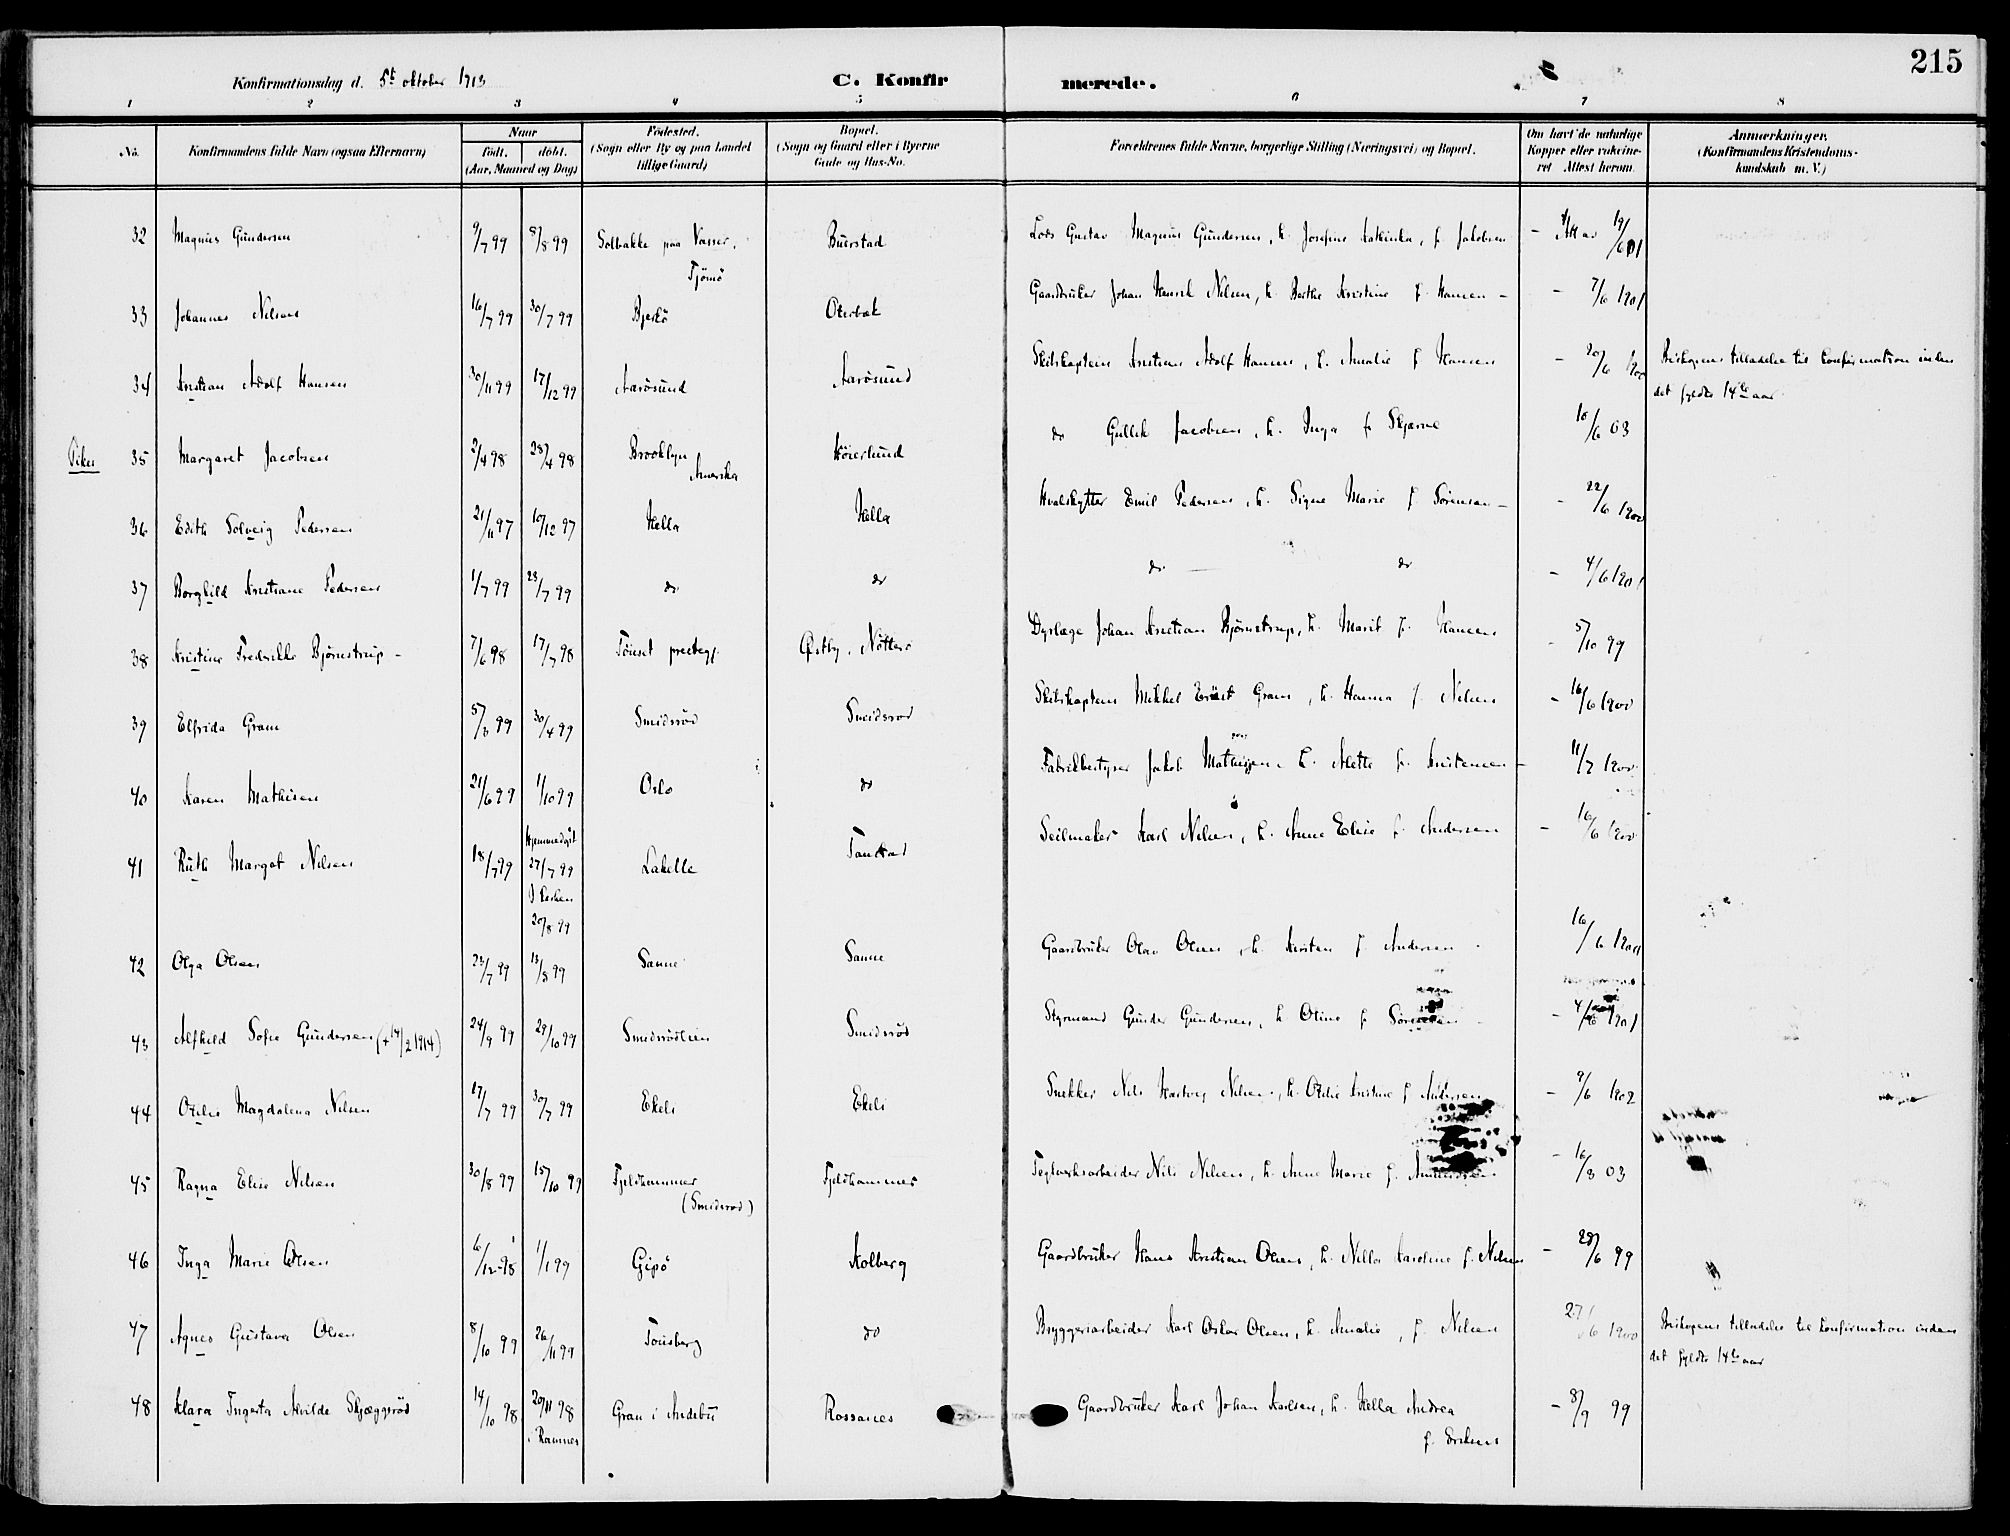 215
Konfirmationsdag d. 5t oktober 1913 C. Konfirmerede.
1 2 3 4 5 6 7 8
No. Konfirmandens fulde Navn (ogsaa Efternavn) Naar født. døbt. (Aar, Maaned og Dag) Fødested. (Sogn eller By og paa Landet tillige Gaard) Bopæl. (Sogn og Gaard eller i Byerne Gade og Hus-No. Forældrenes fulde Navne, borgerlige Stilling (Næringsvei) og Bopæl. Om havt de naturlige Kopper eller vakcineret Attest herom. Anmærkninger. (Konfirmandens Kristendomskundskab m. V.)
32 Magnus Gundersen 9/7 99 8/8 99 Solbakke paa Vasser, Tjømø Buerstad Lods Gustav Magnus Gundersen, h. Josefine Kathinka, f. Jakobsen - 19/6 01
33 Johannes Nilsen 16/7 99 30/7 99 Bjerkø Oterbæk Gaardbruker Johan Henrik Nilsen, h. Berthe Kristine f. Hansen - - 7/6 1901
34 Kristian Adolf Hansen 30/11 99 17/12 99 Aarøsund Aarøsund Skibskaptein Kristian Adolf Hansen, h. Amalie f. Hansen - 20/6 1900 Biskopens tilladelse til konfirmation inden
det fyldte 14de aar
Piker 35 Margaret Jacobsen 2/4 98 28/4 98 Brooklyn Amerika Høierlund do Gullik Jacobsen, h. Inga f. Skjerve 10/6 03
36 Edith Solveig Pedersen 21/11 97 10/12 97 Hella Hella Hvalskytter Emil Pedersen, h. Signe Marie f. Sørensen - - 22/6 1900
37 Borghild Kristiane Pedersen 1/7 99 23/7 99 do do do do - 4/6 1901
38 Kristine Fredrikke Bjørnstrup - 7/6 98 17/7 98 Tønset prestegj. Østby, Nøtterø Dyrlæge Johan Kristian Bjørnstrup, h. Marit f. Hansen - 5/10 99
39 Elfrida Gram 5/3 99 30/4 99 Smidsrød Smidsrød Skibskaptein Mikkel Ernst Gram, h. Hanna f. Nilsen - 16/6 1900
40 Karen Mathisen 21/6 99 1/10 99 Oslo do Fabrikbestyrer Jakob Mathisen, h. Alette f. Kristensen - 11/7 1900
41 Ruth Margot Nilsen 18/7 99 Hjemmedøpt 27/7 99 I kirken 20/8 99 Lahelle Tanstad Seilmaker Karl Nilsen, h. Anne Elise f. Andersen - 16/6 1900
42 Olga Olsen 23/7 99 13/8 99 Sanne Sanne Gaardbruker Olav Olsen, h. Kirsten f. Andersen - 16/6 1900
43 Alfhild Sofie Gundersen (+ 14/2 1914) 24/9 99 29/10 99 Smidsrødlien Smidsrød Styrmand Gunder Gundersen, h. Oline f. Sørensen - - 4/6 1901
44 Otilie Magdalena Nilsen 17/7 99 30/7 99 Ekeli Ekeli Snekker Nils Hartvig Nilsen, h. Otilie Kristine f. Andersen - 9/6 1902
45 Ragna Elise Nilsen 30/8 99 15/10 99 Fjeldhammer (Smidsrød) Fjeldhammer Teglverksarbeider Nils Nilsen, h. Anne Marie f. Amundsen - 16/3 03
46 Inga Marie Olsen 6/12 98 1/1 99 Gipø Kolberg Gaardbruker Hans Kristian Olsen, h. Nilla Karoline f. Nilsen - 28/6 99
47 Agnes Gustava Olsen 8/10 99 26/11 99 Tønsberg do Bryggeriarbeider Karl Oskar Olsen, h. Amalie, f. Nilsen 27/6 1900 Biskopens tilladelse til konfirmation inden
det fyldte 14de aar
48 Klara Ingerta Alvilde Skjæggerød 14/10 98 20/11 98 i Ramnes Gran i Andebu Rossanes Gaardbruker Karl Johan Karlsen, h. Hella Andrea f. Eriksen - 8/9 99